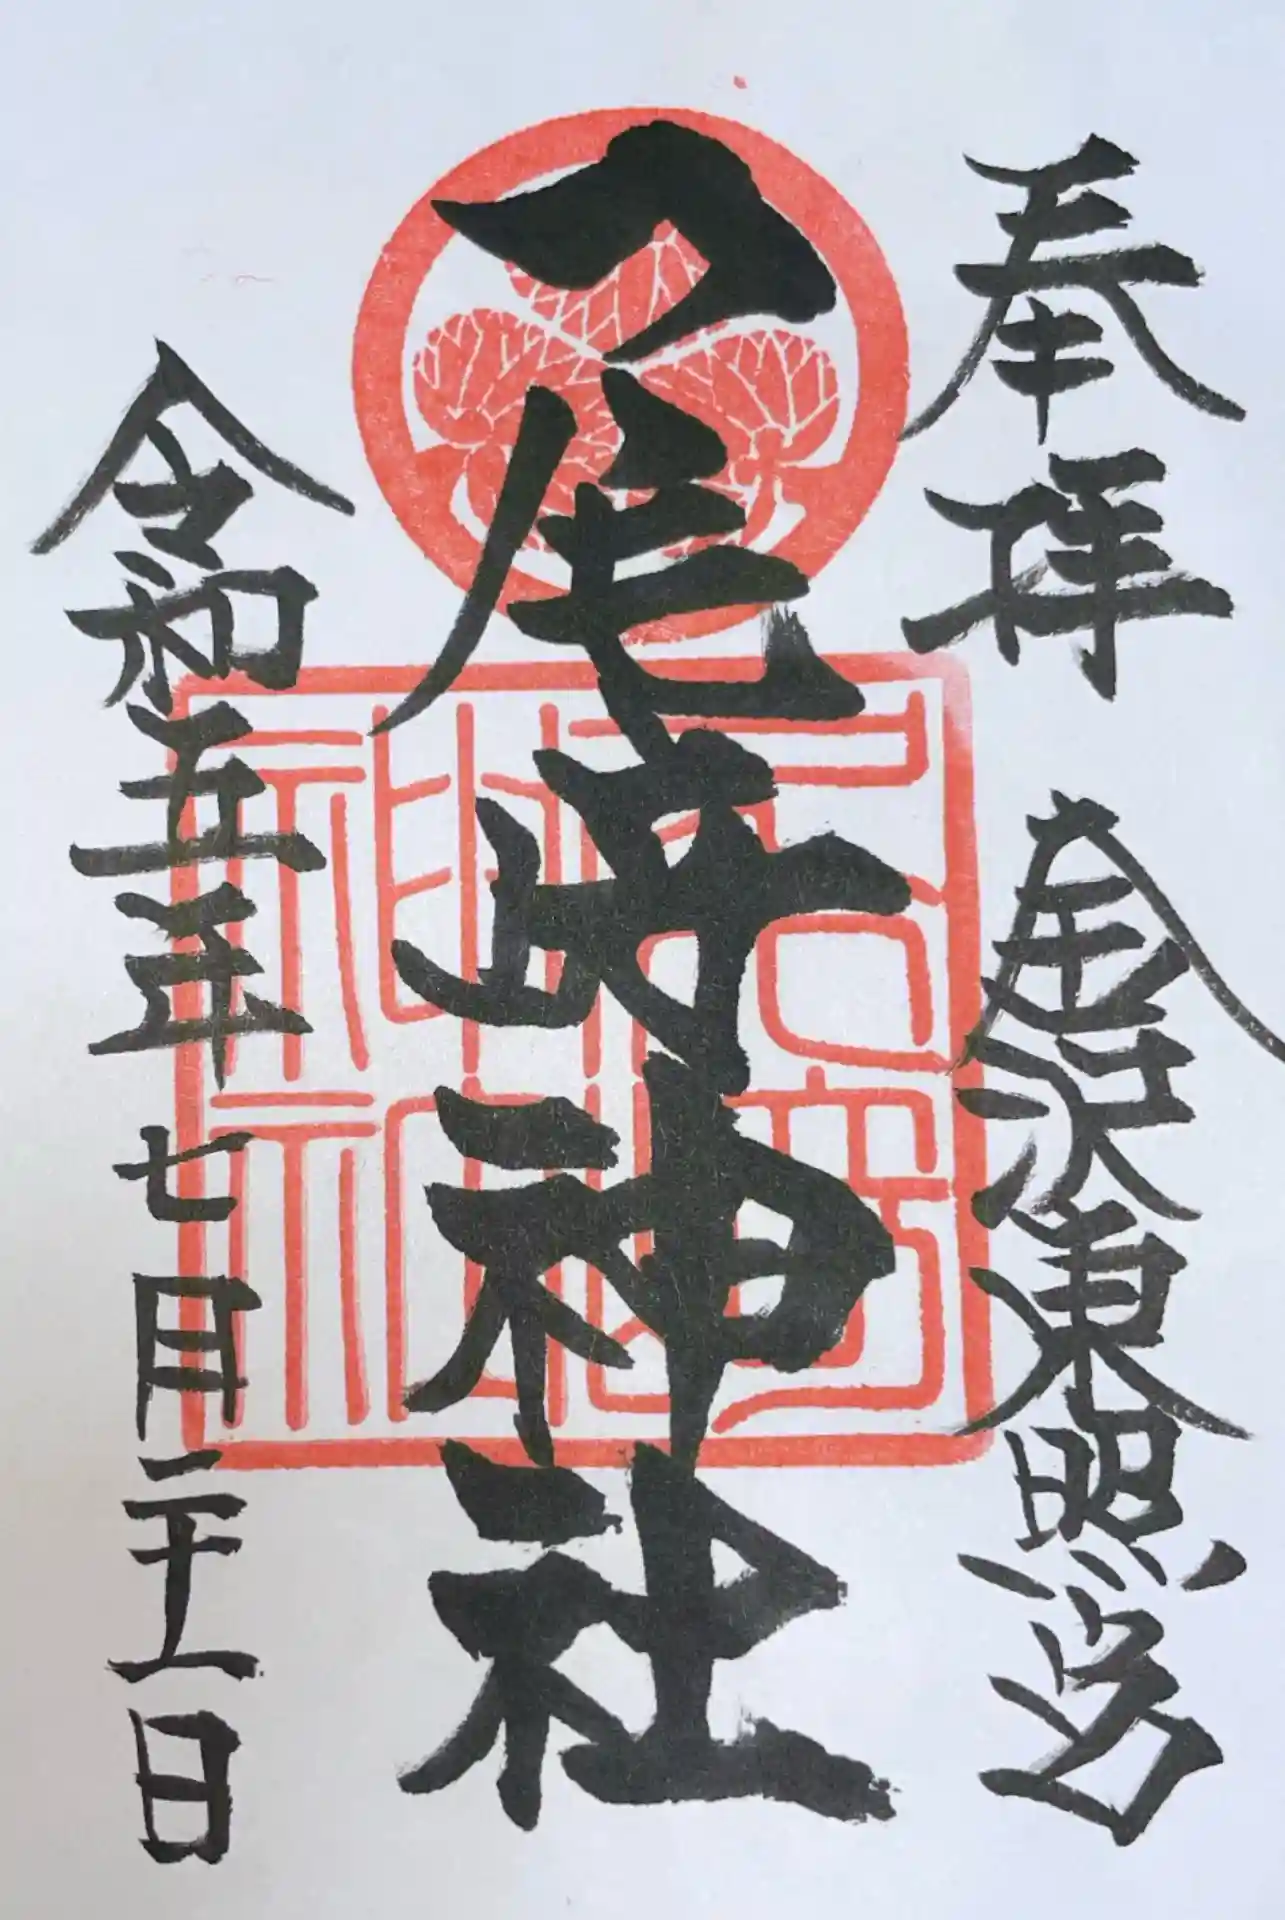 奉拝
金沢東照宮
尾﨑神社
令和五年七月二十一日
尾﨑神社